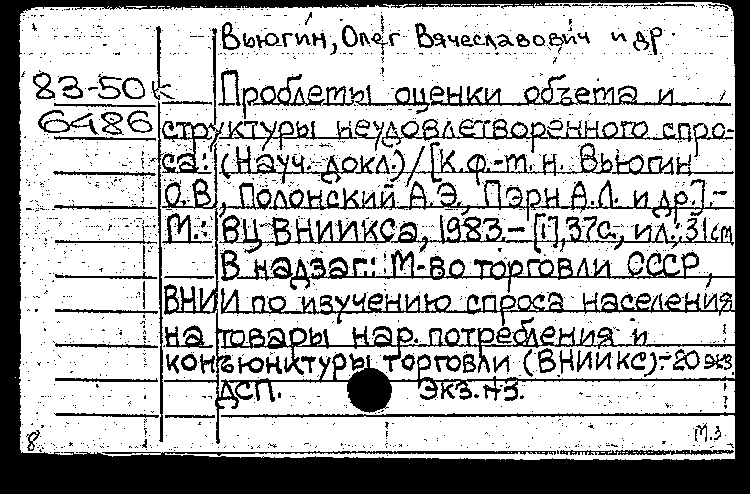 Вьюгин, Олег Вячеславович и др.
83-50к Проблемы оценки объема и
6486 структуры неудовлетворенного спро-
са: (Науч. докл.) / [К.ф.-м. н. Вьюгин
О.В., Полонский А.Э., Пэрн А.Л. и др.]. -
М.: ВЦ ВНИИКСа, 1983. - [1], 37с., ил.; 31см
В надзаг.: М-во торговли СССР,
ВНИИ по изучению спроса населения
на товары нар. потребления и
конъюнктуры торговли (ВНИИКС). - 20 экз.
ДСП. Экз. №3.
8 М.З